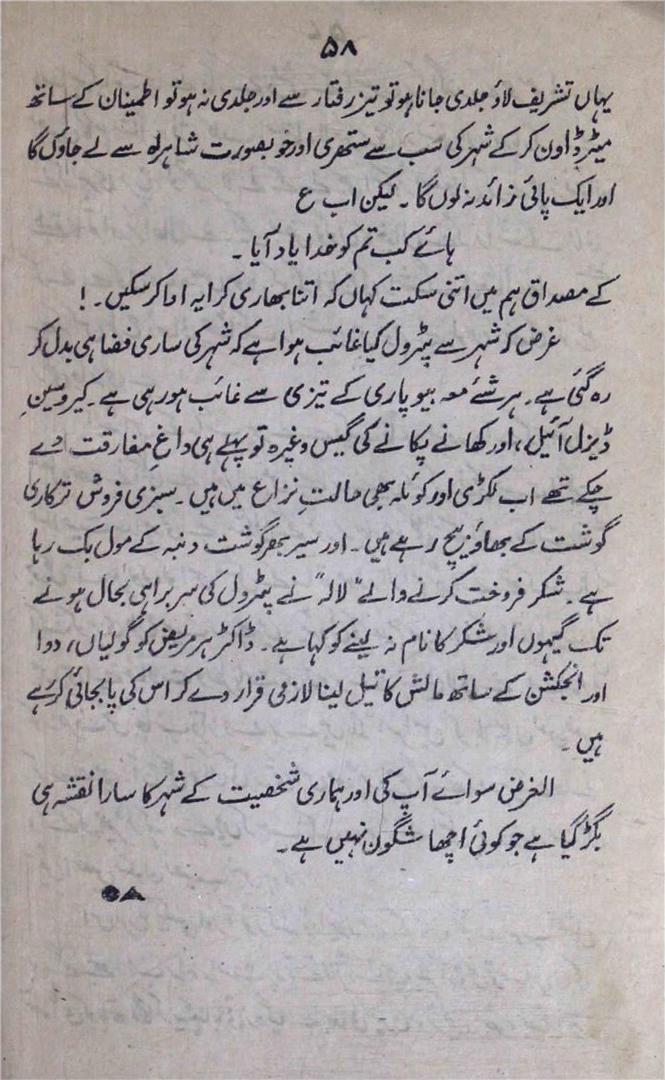 ۵۸
یہاں تشریف لاؤ جلدی جانا ہو تو تیز رفتار سے اور جلدی نہ ہو تو اطمینان کے ساتھ
میٹر ڈاون کر کے شہر کی سب سے ستھری اور خوبصورت شاہراہ سے لے جاوں گا
اور ایک پائی زائد نہ لوں گا ۔ لیکن اب ع
ہائے کب تم کو خدا یاد آیا ۔
کے مصداق ہم میں اتنی سکت کہاں کہ اتنا بھاری کرایہ ادا کر سکیں ۔ !
غرض کہ شہر سے پٹرول کیا غائب ہوا ہے کہ شہر کی ساری فضا ہی بدل کر
رہ گئی ہے ۔ ہر شئے معہ بیوپاری کے تیزی سے غائب ہو رہی ہے ۔ کیروسین
ڈیزل آئیل ، اور کھانے پکانے کی گیس وغیرہ تو پہلے ہی داغِ مفارقت دے
چکے تھے اب لکڑی اور کوئلہ بھی حالتِ نزاع میں ہیں ۔ سبزی فروش ترکاری
گوشت کے بھاؤ بیچ رہے ہیں ۔ اور سیر بھر گوشت دنبہ کے مول بک رہا
ہے ۔ شکر فروخت کرنے والے "لالہ" نے پٹرول کی سربراہی بحال ہونے
تک گیہوں اور شکر کا نام نہ لینے کو کہا ہے ۔ ڈاکٹر ہر مریض کو گولیاں ، دوا
اور انجکشن کے ساتھ مالش کا تیل لینا لازمی قرار دے کر اس کی پابجائی کر رہے
ہیں ۔
الغرض سوائے آپ کی اور ہماری شخصیت کے شہر کا سارا نقشہ ہی
بگڑ گیا ہے جو کوئی اچھا شگون نہیں ہے ۔